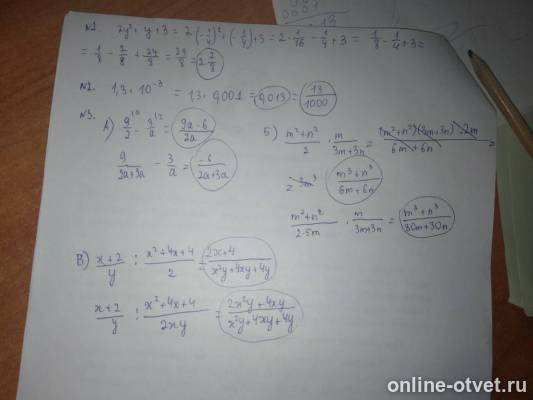 №1. 2y² + y + 3 = 2·(-1/4)² + (-1/4) + 3 = 2·1/16 - 1/4 + 3 = 1/8 - 1/4 + 3 =
= 1/8 - 2/8 + 24/8 = 23/8 = 2 7/8
№2. 1,3 · 10⁻³ = 1,3 · 0,001 = 0,0013 = 13/1000
№3.
А) 9/2 - 3/a = (9a - 6)/2a
9/(2a+3a) - 3/a = -6/(2a+3a)
Б) (m² + n²)/2 · m/(3m+3n) = =
= (m³ + n³)/(6m + 6n)
(m² + n²)/(2·5m) · m/(3m+3n) = (m³ + n³)/(30m + 30n)
В) (x+2)/y : (x² + 4x + 4)/2 = (2x+4)/(x²y + 4xy + 4y)
(x+2)/y : (x² + 4x + 4)/2xy = (2x²y + 4xy)/(x²y + 4xy + 4y)
online-otvet.ru